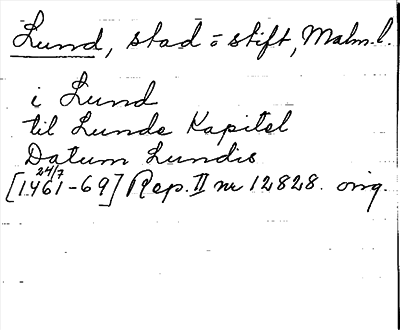 Lund, stad o stift, Malm. l.
i Lund
til Lunde Kapitel
Datum Lundis
24/7
[1461-69] Rep. II nr 12828. orig.